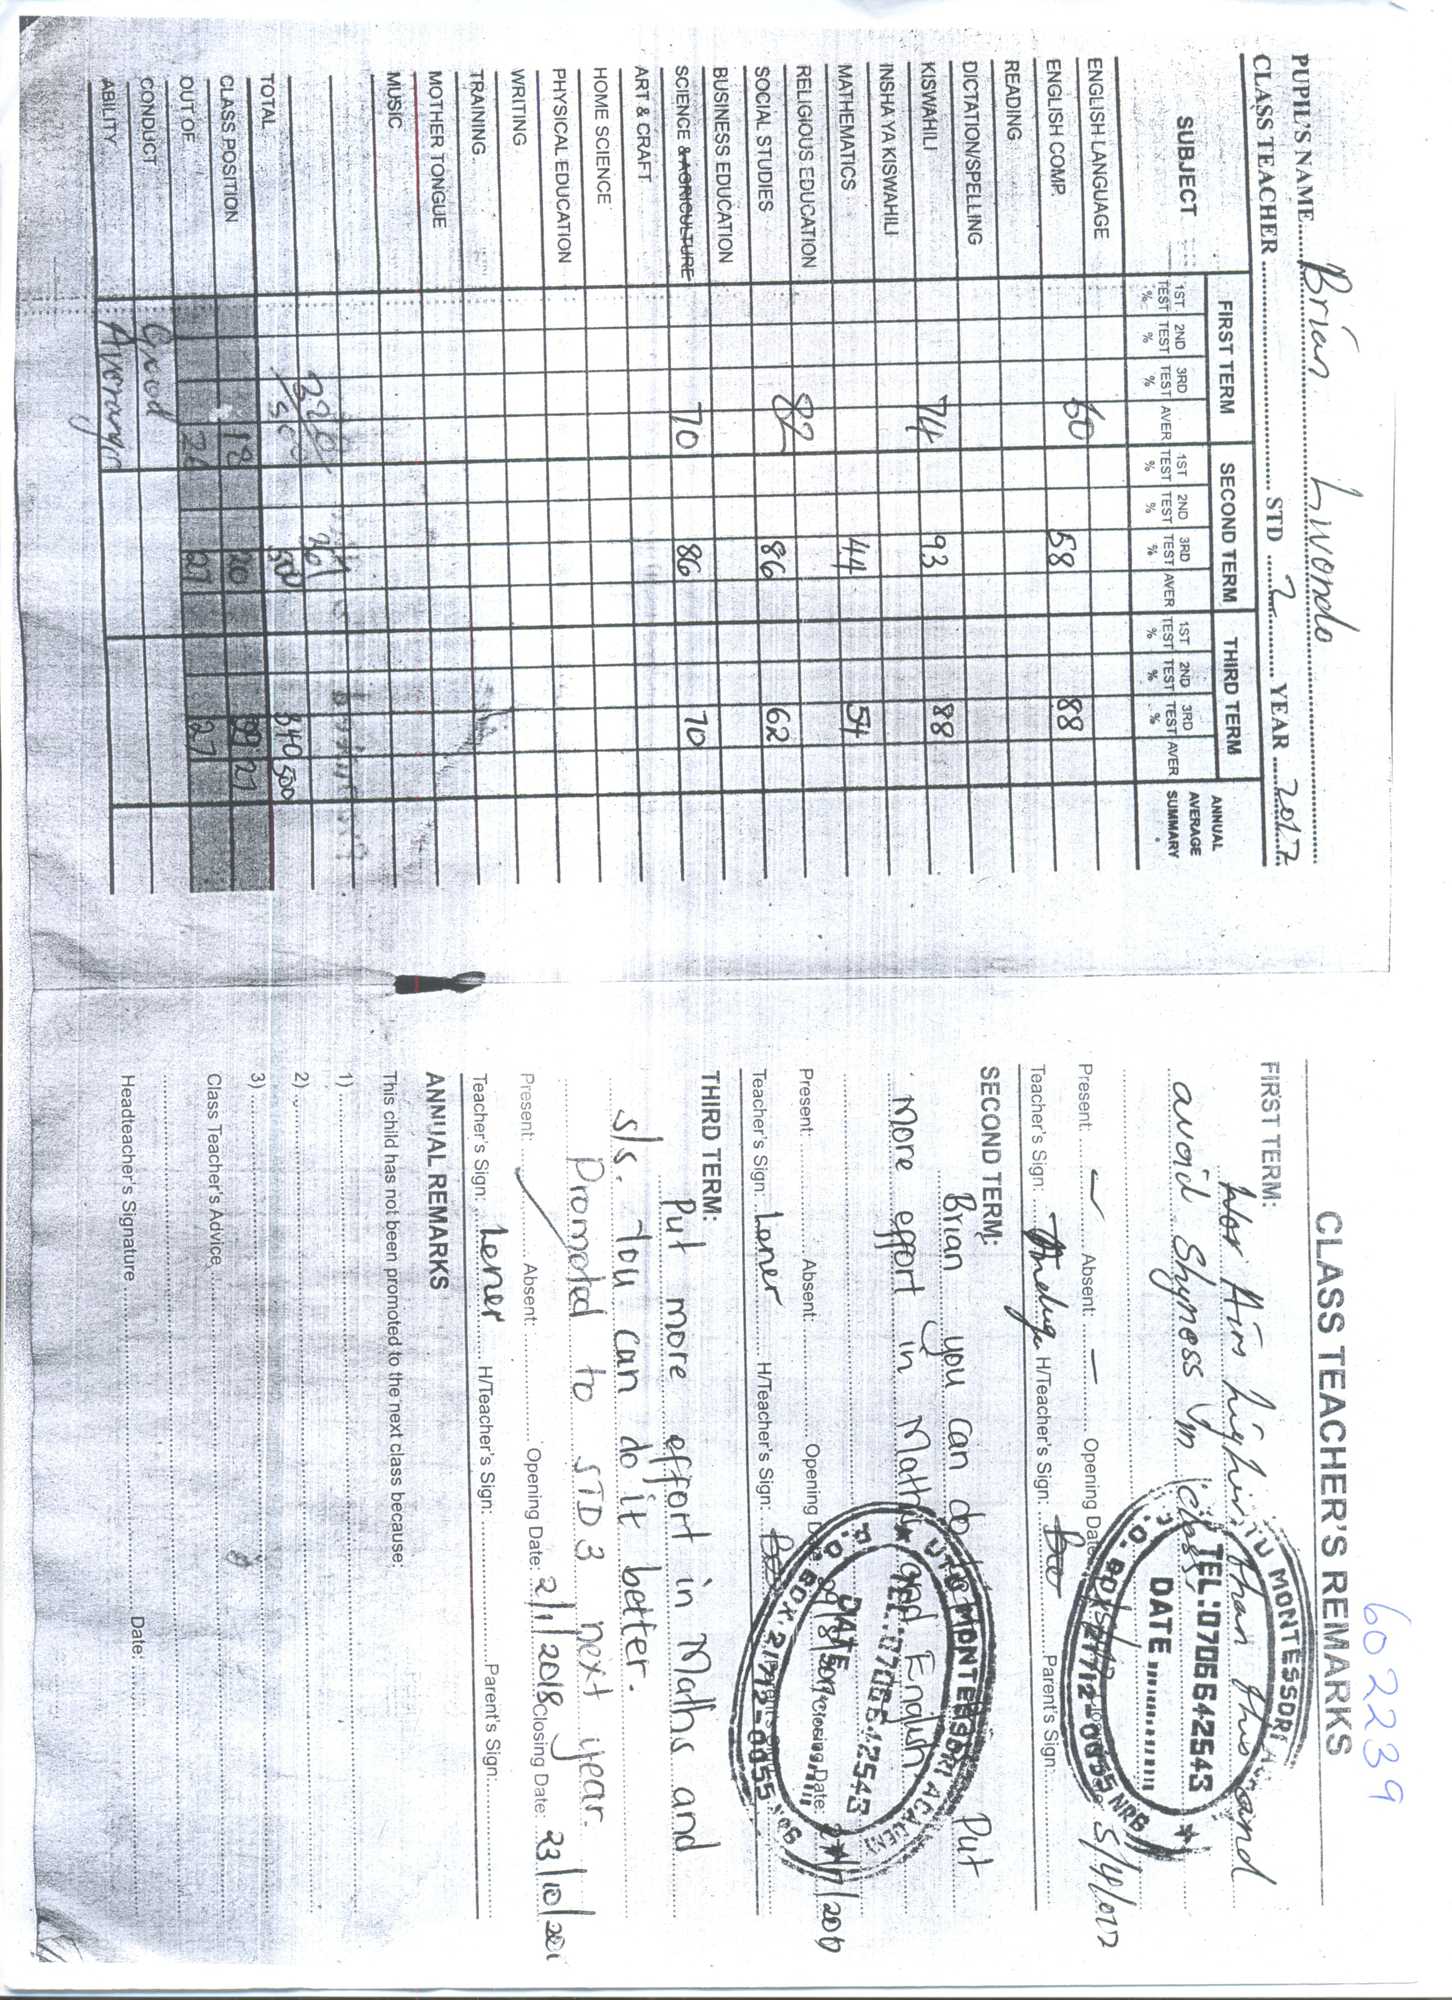 6022239
PUPIL'S NAME Brian Livondo
CLASS TEACHER STD 2 YEAR 2017
SUBJECT FIRST TERM SECOND TERM THIRD TERM ANNUAL AVERAGE SUMMARY
1ST TEST % 2ND TEST % 3RD TEST % AVER 1ST TEST % 2ND TEST % 3RD TEST % AVER 1ST TEST % 2ND TEST % 3RD TEST % AVER
ENGLISH LANGUAGE
ENGLISH COMP. 60 58 88
READING
DICTATION/SPELLING
KISWAHILI 74 93 88
INSHA YA KISWAHILI
MATHEMATICS 44 54
RELIGIOUS EDUCATION
SOCIAL STUDIES 82 86 62
BUSINESS EDUCATION
SCIENCE & AGRICULTURE 70 86 70
ART & CRAFT
HOME SCIENCE
PHYSICAL EDUCATION
WRITING
TRAINING
MOTHER TONGUE
MUSIC
TOTAL 500 500 340 500
CLASS POSITION 18 20 27
OUT OF 27 27
CONDUCT Good
ABILITY Average
CLASS TEACHER'S REMARKS
FIRST TERM:
Aim higher than this and
avoid shyness in class.
Present: Absent: Opening Date: Closing Date: 5/4/017
Teacher's Sign: H/Teacher's Sign: Parent's Sign:
MONTESSORI
TEL:0706642543
DATE
P.O. BOX 21712-0055 NRB
SECOND TERM:
Brian you can do Put
more effort in Maths and English
Present: Absent: Opening Date: Closing Date:
Teacher's Sign: Lener H/Teacher's Sign: Parent's Sign:
MONTESSORI ACADEMY
TEL:0706642543
DATE
P.O. BOX 21712-0055 NRB
THIRD TERM:
Put more effort in Maths and
S/S. You can do it better.
Promoted to STD 3 next year.
Present: Absent: Opening Date: 2/1/2018 Closing Date: 23/10/201
Teacher's Sign: Lener H/Teacher's Sign: Parent's Sign:
ANNUAL REMARKS
This child has not been promoted to the next class because:
1)
2)
3)
Class Teacher's Advice
Headteacher's Signature Date: